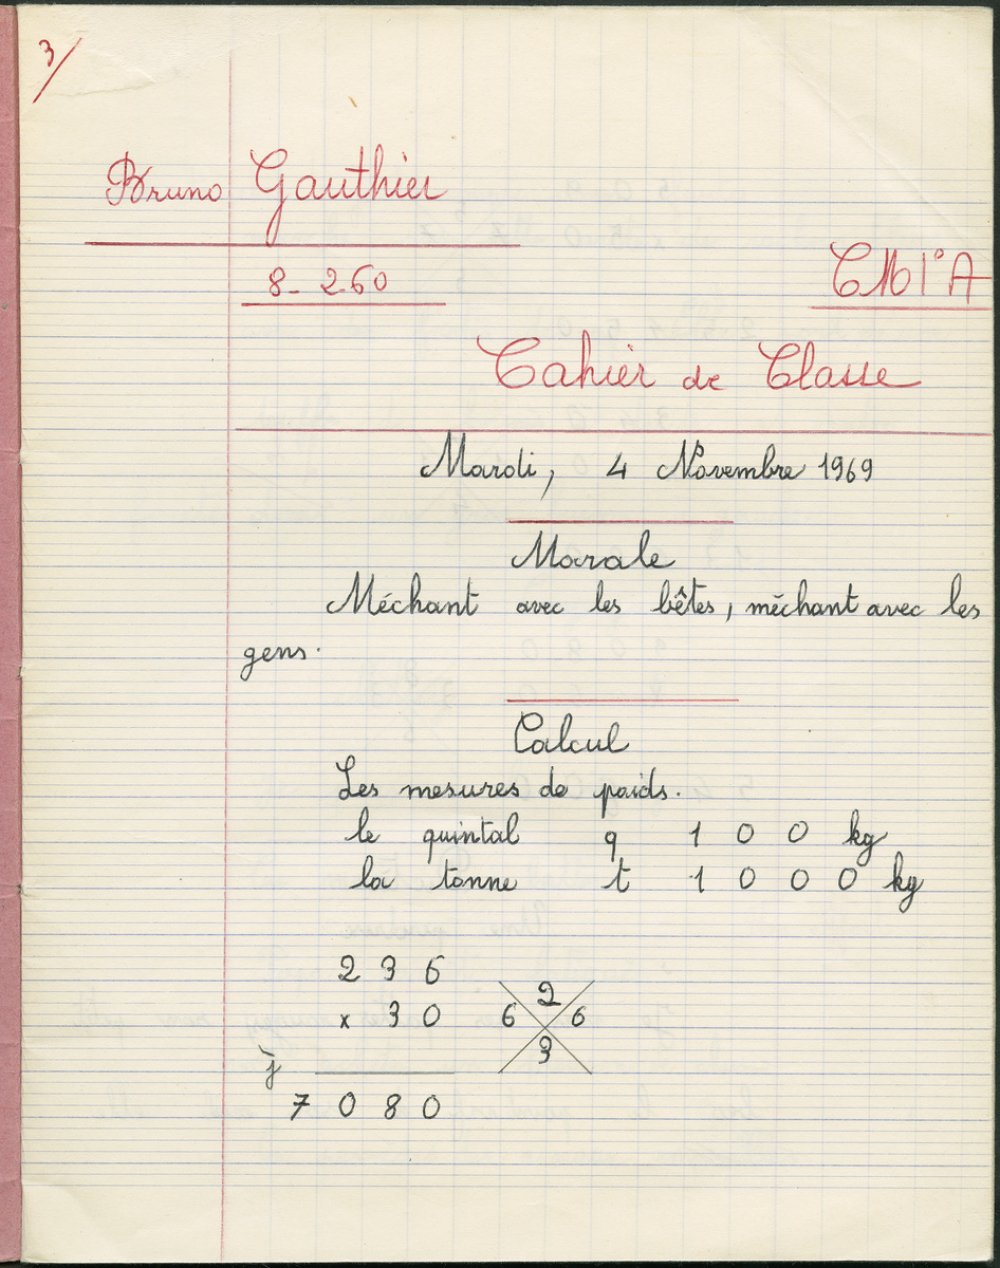 3/
Bruno Gauthier
8-260
CM1°A
Cahier de Classe
Mardi, 4 Novembre 1969
Morale
Méchant avec les bêtes, méchant avec les
gens.
Calcul
Les mesures de poids.
le quintal q 1 0 0 kg
la tonne t 1 0 0 0 kg
2 3 6
x 3 0
2
6 6
3
j
7 0 8 0